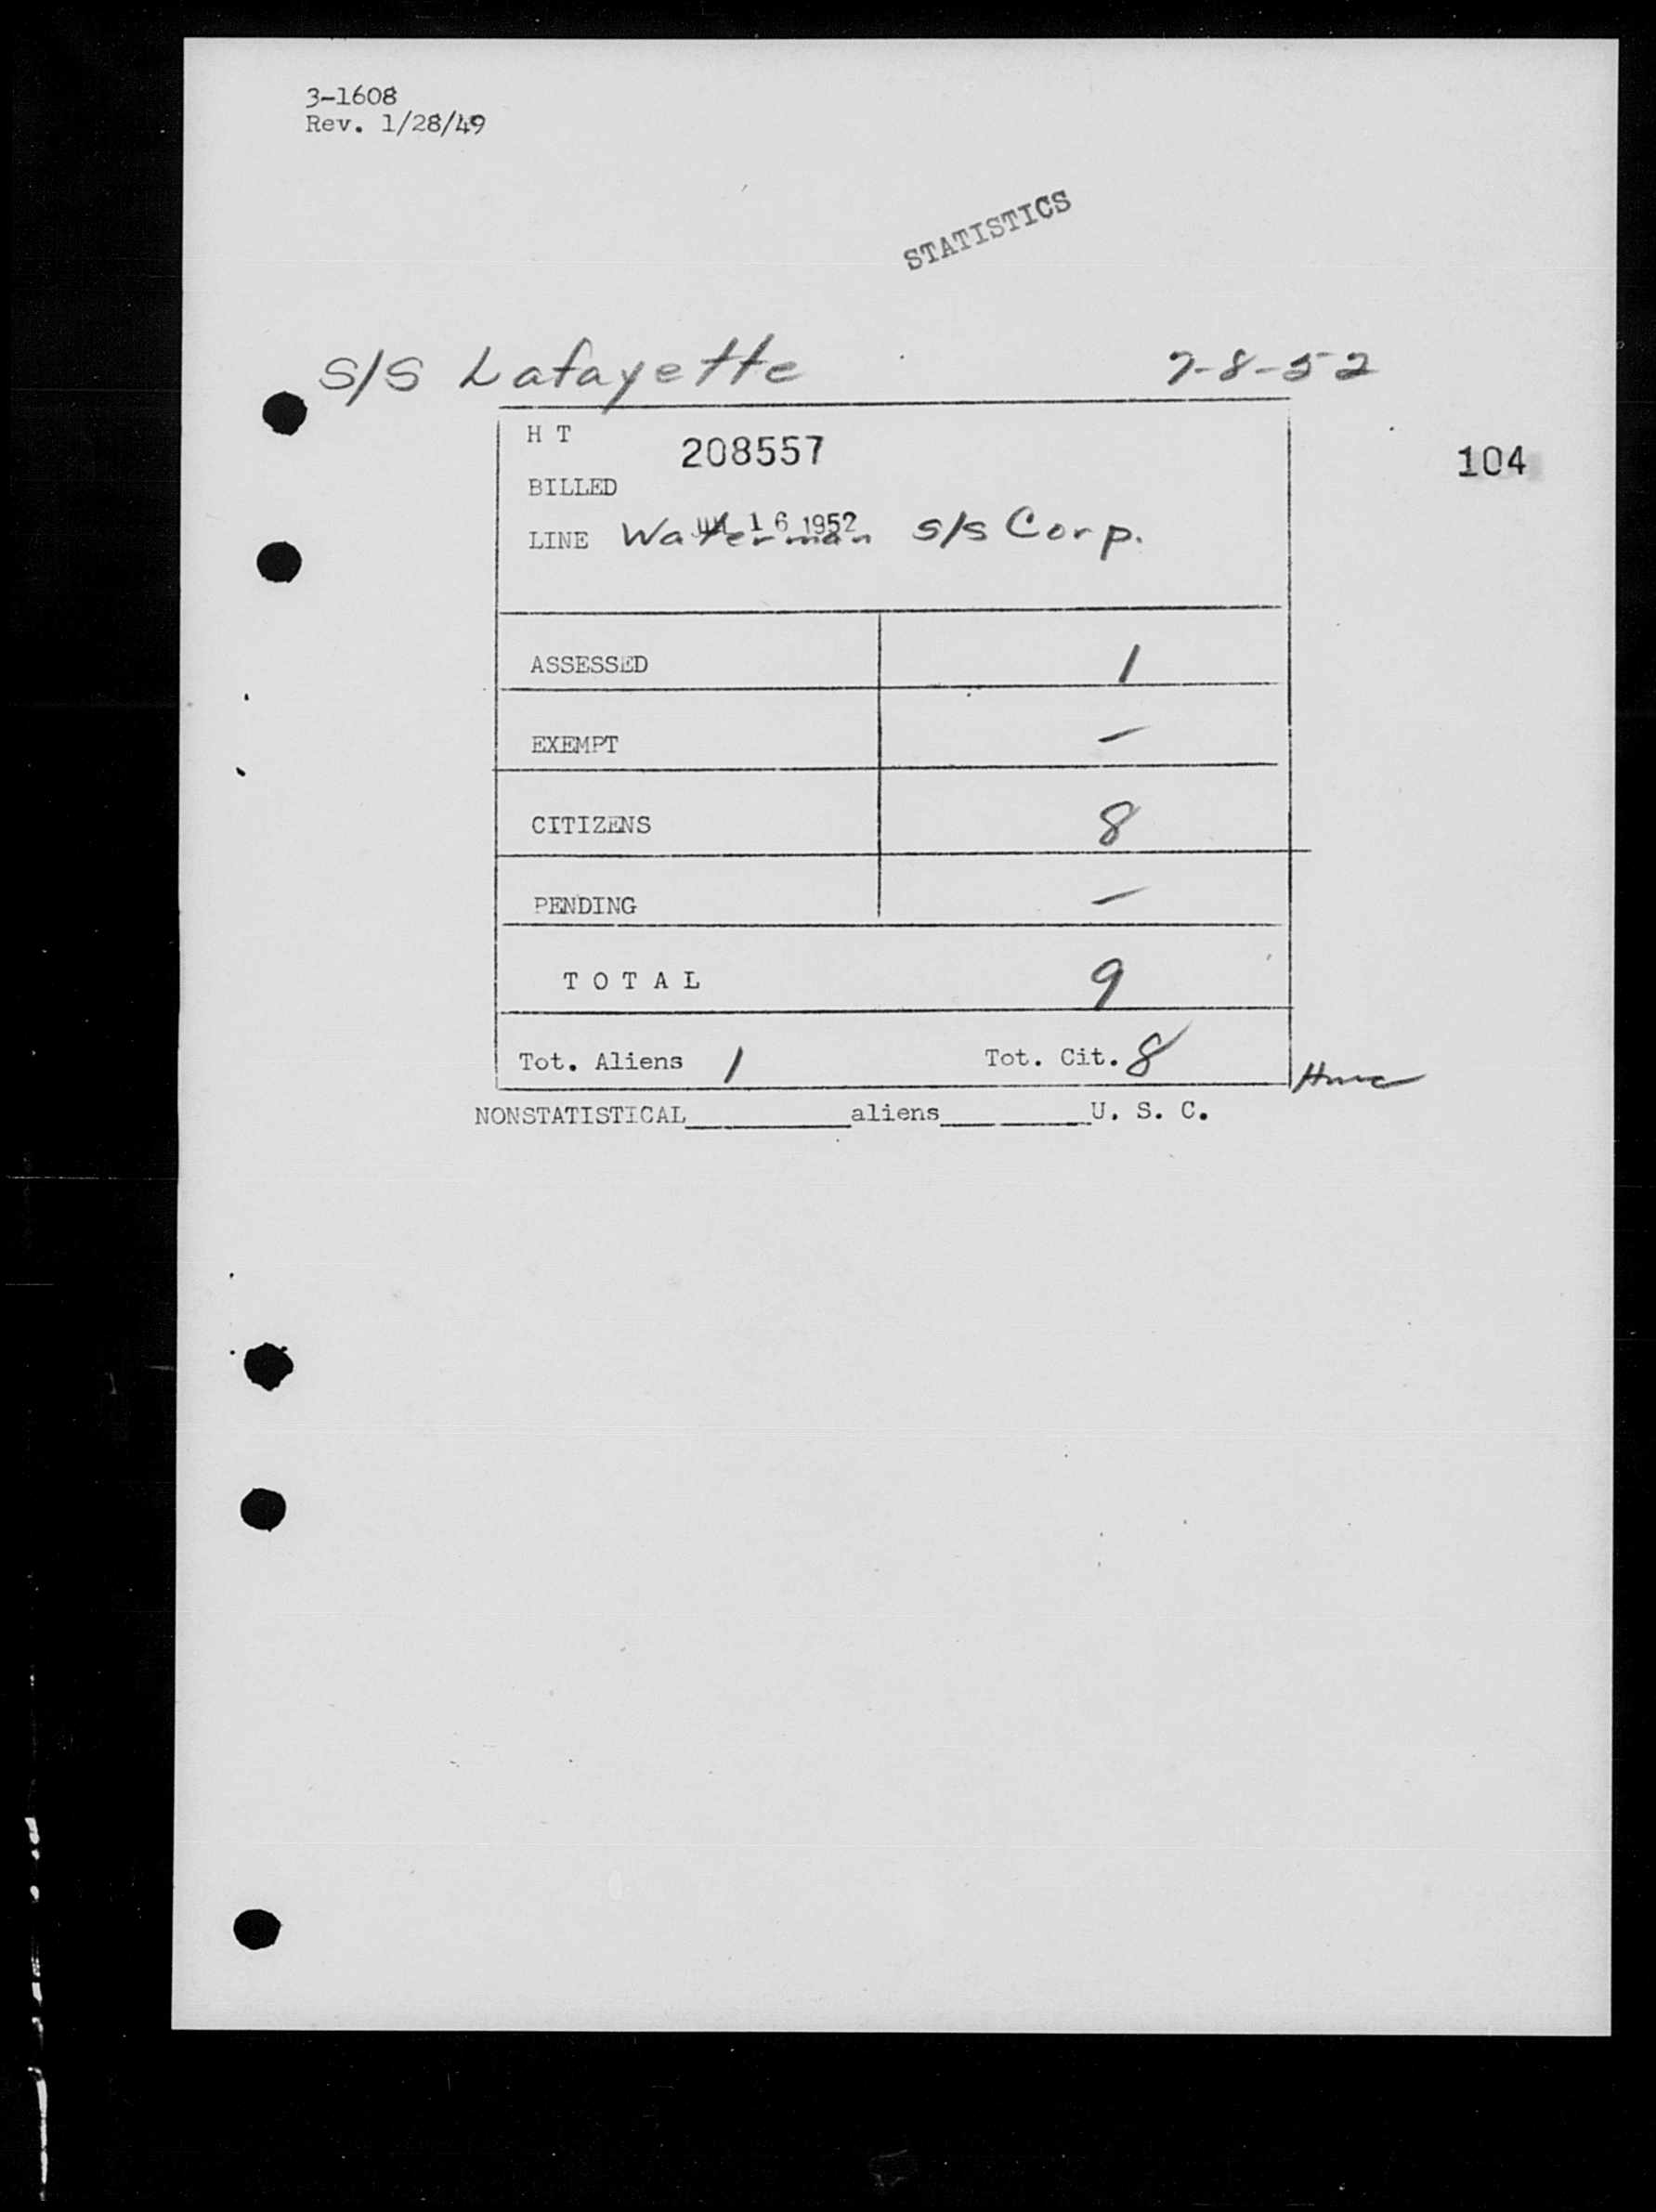 3-1608
Rev. 1/28/49
STATISTICS
S/S Lafayette 7-8-52
H T 208557
104
BILLED
JUL 16 1952
LINE Waterman S/S Corp.
ASSESSED 1
EXEMPT —
CITIZENS 8
PENDING —
T O T A L 9
Tot. Aliens 1 Tot. Cit. 8
NONSTATISTICAL__________aliens__________U. S. C.